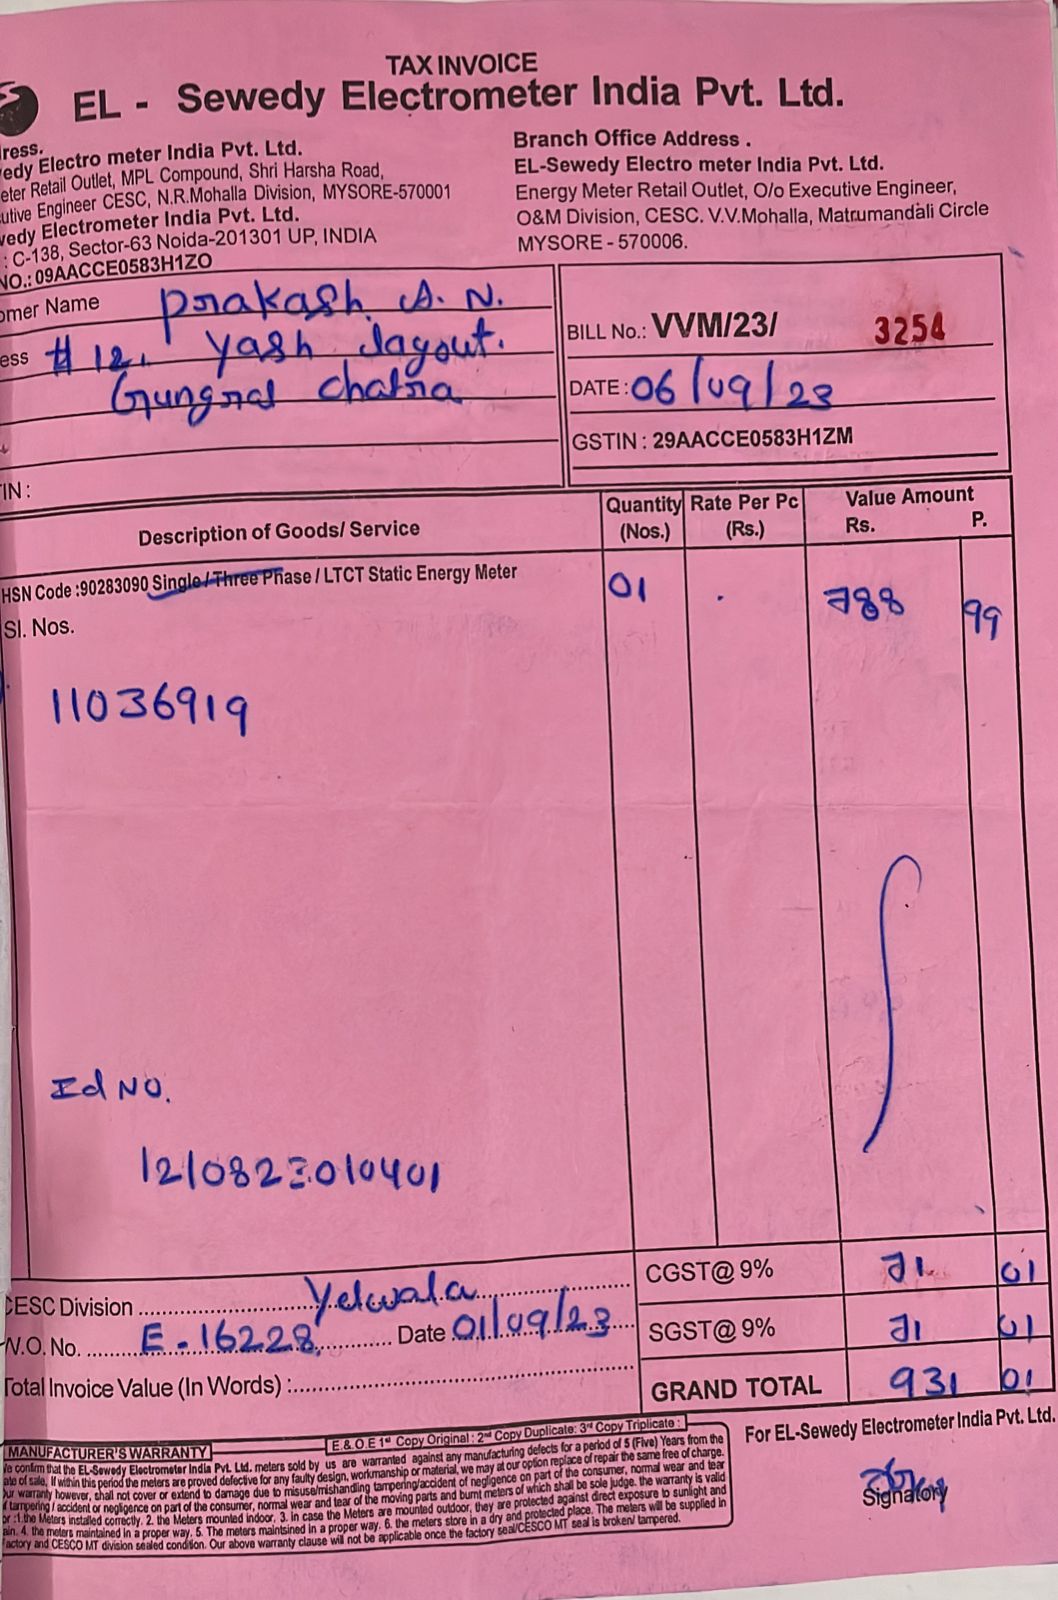 TAX INVOICE
EL - Sewedy Electrometer India Pvt. Ltd.
ress.
edy Electro meter India Pvt. Ltd.
eter Retail Outlet, MPL Compound, Shri Harsha Road,
utive Engineer CESC, N.R.Mohalla Division, MYSORE-570001
wedy Electrometer India Pvt. Ltd.
: C-138, Sector-63 Noida-201301 UP, INDIA
NO.: 09AACCE0583H1ZO
Branch Office Address .
EL-Sewedy Electro meter India Pvt. Ltd.
Energy Meter Retail Outlet, O/o Executive Engineer,
O&M Division, CESC. V.V.Mohalla, Matrumandali Circle
MYSORE - 570006.
omer Name Prakash. A. N.
ess # 12, Yash Layout.
Gungral Chatra
TIN :
BILL No.: VVM/23/ 3254
DATE : 06/09/23
GSTIN : 29AACCE0583H1ZM
Description of Goods/ Service Quantity (Nos.) Rate Per Pc (Rs.) Value Amount Rs. P.
HSN Code :90283090 Single / Three Phase / LTCT Static Energy Meter 01 788 99
Sl. Nos.
11036919
Id NO.
1210823010401
CESC Division Yelwala
W.O. No. E-16228. Date 01/09/23
Total Invoice Value (In Words) :
CGST@ 9% 71 01
SGST@ 9% 71 01
GRAND TOTAL 931 01
E.& O.E 1st Copy Original : 2nd Copy Duplicate: 3rd Copy Triplicate :
MANUFACTURER'S WARRANTY
We confirm that the EL-Sewedy Electrometer India Pvt. Ltd. meters sold by us are warranted against any manufacturing defects for a period of 5 (Five) Years from the
ate of sale. If within this period the meters are proved defective for any faulty design, workmanship or material, we may at our option replace of repair the same free of charge.
our warranty however, shall not cover or extend to damage due to misuse/mishandling tampering/accident of negligence on part of the consumer, normal wear and tear
f tampering / accident or negligence on part of the consumer, normal wear and tear of the moving parts and burnt meters of which shall be sole judge. the warranty is valid
or : 1. the Meters installed correctly. 2. the Meters mounted indoor. 3. in case the Meters are mounted outdoor, they are protected against direct exposure to sunlight and
ain. 4. the meters maintained in a proper way. 5. The meters maintsined in a proper way. 6. the meters store in a dry and protected place. The meters will be supplied in
factory and CESCO MT division sealed condition. Our above warranty clause will not be applicable once the factory seal/CESCO MT seal is broken/ tampered.
For EL-Sewedy Electrometer India Pvt. Ltd.
Signatory